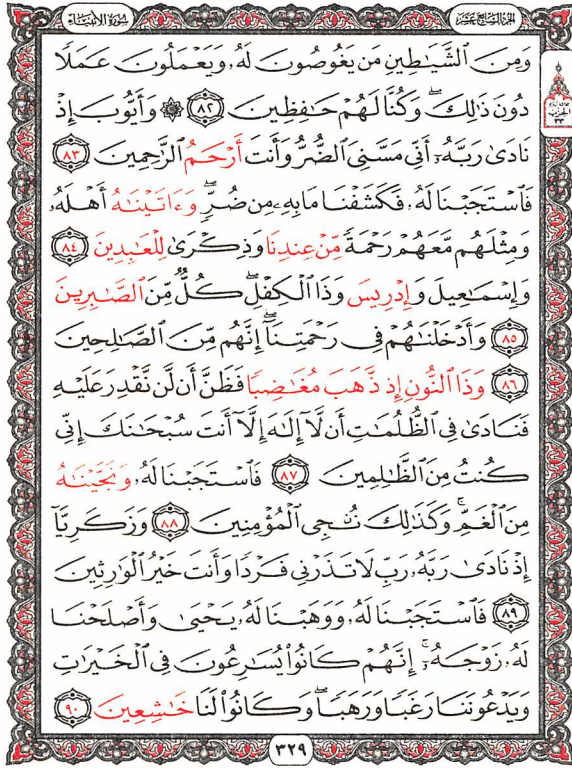 سُورَةُ الأَنبِيَاءِ
الجُزءُ السَّابِعَ عَشَر
وَمِنَ ٱلشَّيَٰطِينِ مَن يَغُوصُونَ لَهُۥ وَيَعْمَلُونَ عَمَلًا
دُونَ ذَٰلِكَ ۖ وَكُنَّا لَهُمْ حَٰفِظِينَ ٨٢ ۞ وَأَيُّوبَ إِذْ
نَادَىٰ رَبَّهُۥٓ أَنِّى مَسَّنِىَ ٱلضُّرُّ وَأَنتَ أَرْحَمُ ٱلرَّٰحِمِينَ ٨٣
فَٱسْتَجَبْنَا لَهُۥ فَكَشَفْنَا مَا بِهِۦ مِن ضُرٍّ ۖ وَءَاتَيْنَٰهُ أَهْلَهُۥ
وَمِثْلَهُم مَّعَهُمْ رَحْمَةً مِّنْ عِندِنَا وَذِكْرَىٰ لِلْعَٰبِدِينَ ٨٤
وَإِسْمَٰعِيلَ وَإِدْرِيسَ وَذَا ٱلْكِفْلِ ۖ كُلٌّ مِّنَ ٱلصَّٰبِرِينَ
٨٥ وَأَدْخَلْنَٰهُمْ فِى رَحْمَتِنَآ ۖ إِنَّهُم مِّنَ ٱلصَّٰلِحِينَ
٨٦ وَذَا ٱلنُّونِ إِذ ذَّهَبَ مُغَٰضِبًا فَظَنَّ أَن لَّن نَّقْدِرَ عَلَيْهِ
فَنَادَىٰ فِى ٱلظُّلُمَٰتِ أَن لَّآ إِلَٰهَ إِلَّآ أَنتَ سُبْحَٰنَكَ إِنِّى
كُنتُ مِنَ ٱلظَّٰلِمِينَ ٨٧ فَٱسْتَجَبْنَا لَهُۥ وَنَجَّيْنَٰهُ
مِنَ ٱلْغَمِّ ۚ وَكَذَٰلِكَ نُۨجِى ٱلْمُؤْمِنِينَ ٨٨ وَزَكَرِيَّآ
إِذْ نَادَىٰ رَبَّهُۥ رَبِّ لَا تَذَرْنِى فَرْدًا وَأَنتَ خَيْرُ ٱلْوَٰرِثِينَ
٨٩ فَٱسْتَجَبْنَا لَهُۥ وَوَهَبْنَا لَهُۥ يَحْيَىٰ وَأَصْلَحْنَا
لَهُۥ زَوْجَهُۥٓ ۚ إِنَّهُمْ كَانُوا۟ يُسَٰرِعُونَ فِى ٱلْخَيْرَٰتِ
وَيَدْعُونَنَا رَغَبًا وَرَهَبًا ۖ وَكَانُوا۟ لَنَا خَٰشِعِينَ ٩٠
٣٢٩